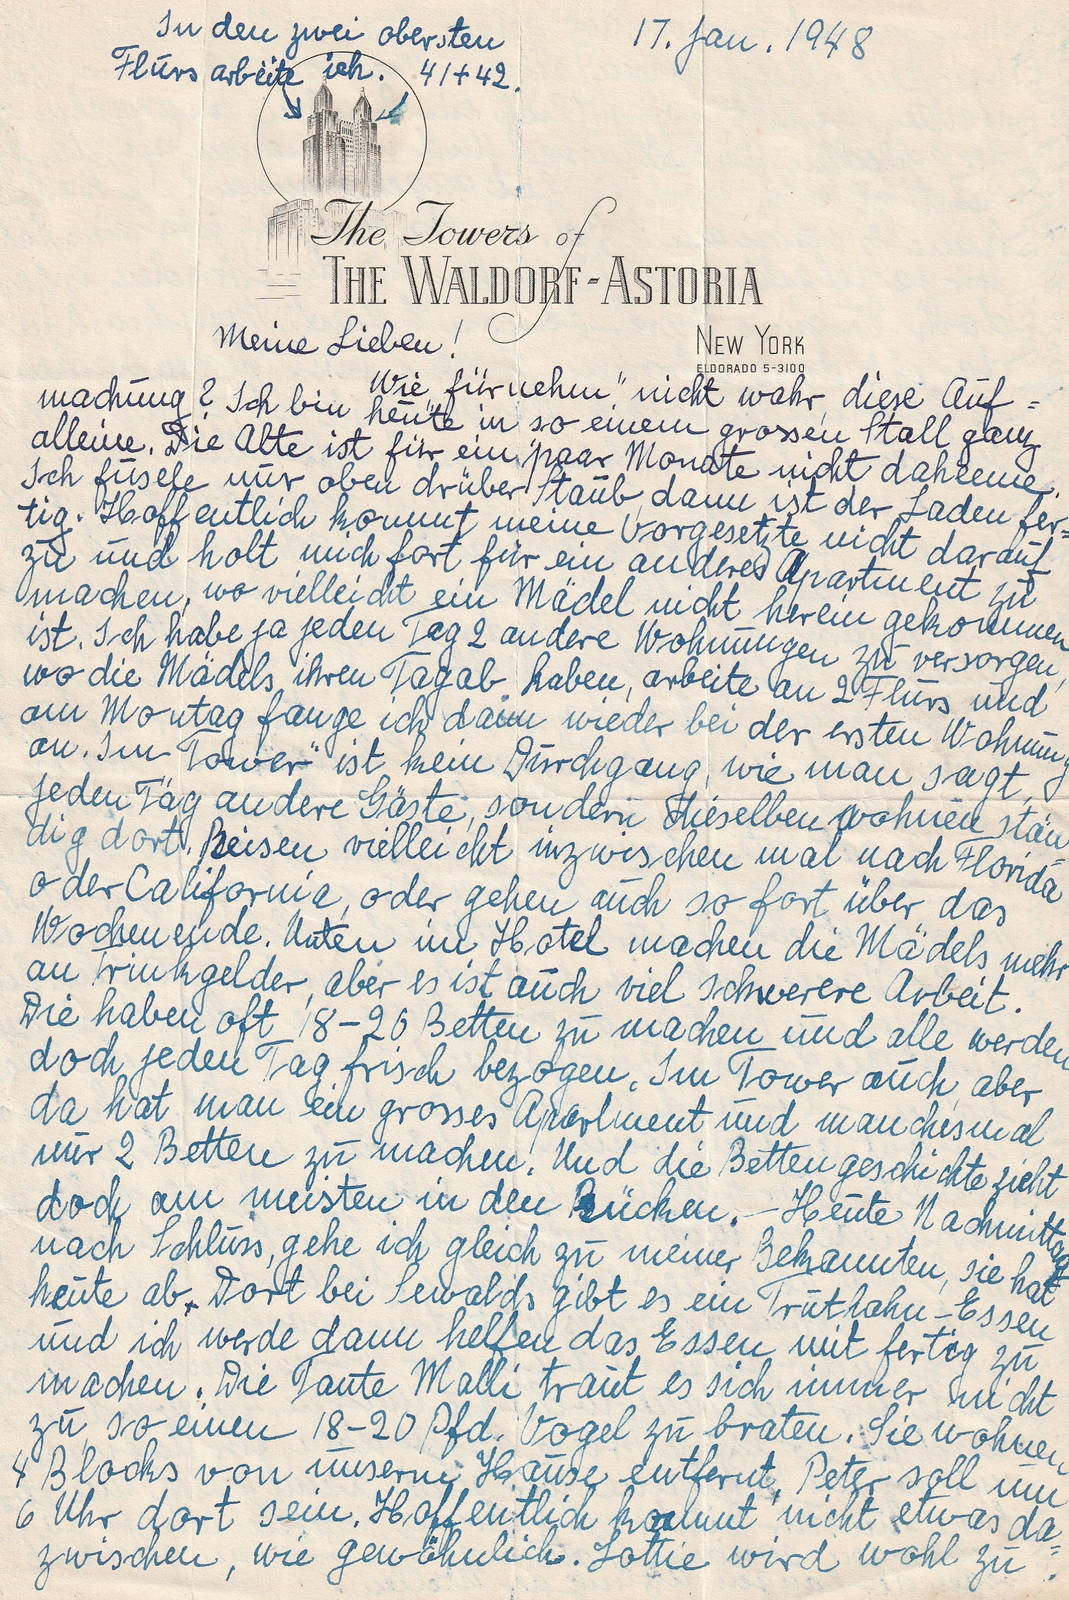 In den zwei obersten
Flurs arbeite ich. 41+42.
17. Jan. 1948
The Towers of
THE WALDORF-ASTORIA
NEW YORK
ELDORADO 5-3100
Meine Lieben!
Wie „fürnehm" nicht wahr, diese Auf=
machung? Ich bin heute in so einem grossen Stall ganz
alleine. Die Alte ist für ein paar Monate nicht daheeme.
Ich fusele nur oben drüber Staub, dann ist der Laden fer=
tig. Hoffentlich kommt meine Vorgesetzte nicht darauf
zu und holt mich fort für ein anderes Apartment zu
machen, wo vielleicht ein Mädel nicht herein gekommen
ist. Ich habe ja jeden Tag 2 andere Wohnungen zu versorgen,
wo die Mädels ihren Tag ab haben, arbeite an 2 Flurs und
am Montag fange ich dann wieder bei der ersten Wohnung
an. Im „Tower" ist kein Durchgang, wie man sagt,
jeden Tag andere Gäste, sondern dieselben wohnen stän
dig dort. Reisen vielleicht inzwischen mal nach Florida
oder California, oder gehen auch so fort über das
Wochenende. Unten im Hotel machen die Mädels mehr
an Trinkgelder, aber es ist auch viel schwerere Arbeit.
Die haben oft 18-20 Betten zu machen und alle werden
doch jeden Tag frisch bezogen. Im Tower auch, aber
da hat man ein grosses Apartment und manchesmal
nur 2 Betten zu machen. Und die Bettengeschichte zieht
doch am meisten in den Rücken. – Heute Nachmittag
nach Schluss, gehe ich gleich zu meiner Bekannten, sie hat
heute ab. Dort bei Sewalds gibt es ein Truthahn-Essen
und ich werde dann helfen das Essen mit fertig zu
machen. Die Tante Malli traut es sich immer nicht
zu, so einen 18-20 Pfd. Vogel zu braten. Sie wohnen
4 Blocks von unserm Hause entfernt. Peter soll um
6 Uhr dort sein. Hoffentlich kommt nicht etwas da=
zwischen, wie gewöhnlich. Lottie wird wohl zu